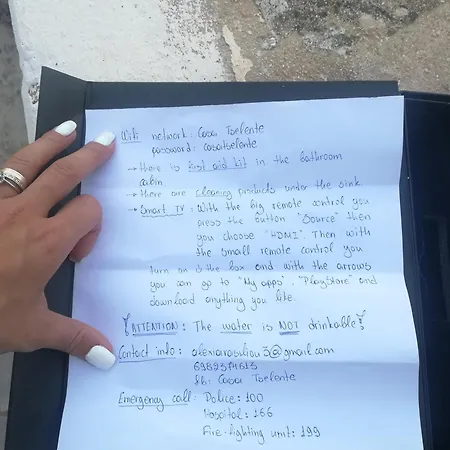 Wifi network: Casa Tselente
password: casatselente
→ there is first aid kit in the bathroom
cabin
→ there are cleaning products under the sink
→ Smart TV: With the big remote control you
press the button "Source" then
you choose "HDMI2". Then with
the small remote control you
turn on the box and with the arrows
you can go to "My apps", "PlayStore" and
download anything you like.
! ATTENTION: The water is NOT drinkable!
Contact info: @gmail.com
fb: Casa Tselente
Emergency call: Police: 100
Hospital: 166
Fire-fighting unit: 199